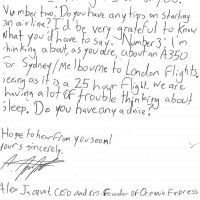 Number two: Do you have any tips on starting
an airline? I'd be very grateful to know
what you'd have to say. Number 3: I'm
thinking about, as you are, about an A350
for Sydney/Melbourne to London flights.
seeing as it is a 25 hour flight. we are
having a lot of trouble thinking about
sleep. Do you have any advice?
Hope to hear from you soon!
Yours sincerely,
Alex Jacquot, CEO and co-Founder of Oceania Express